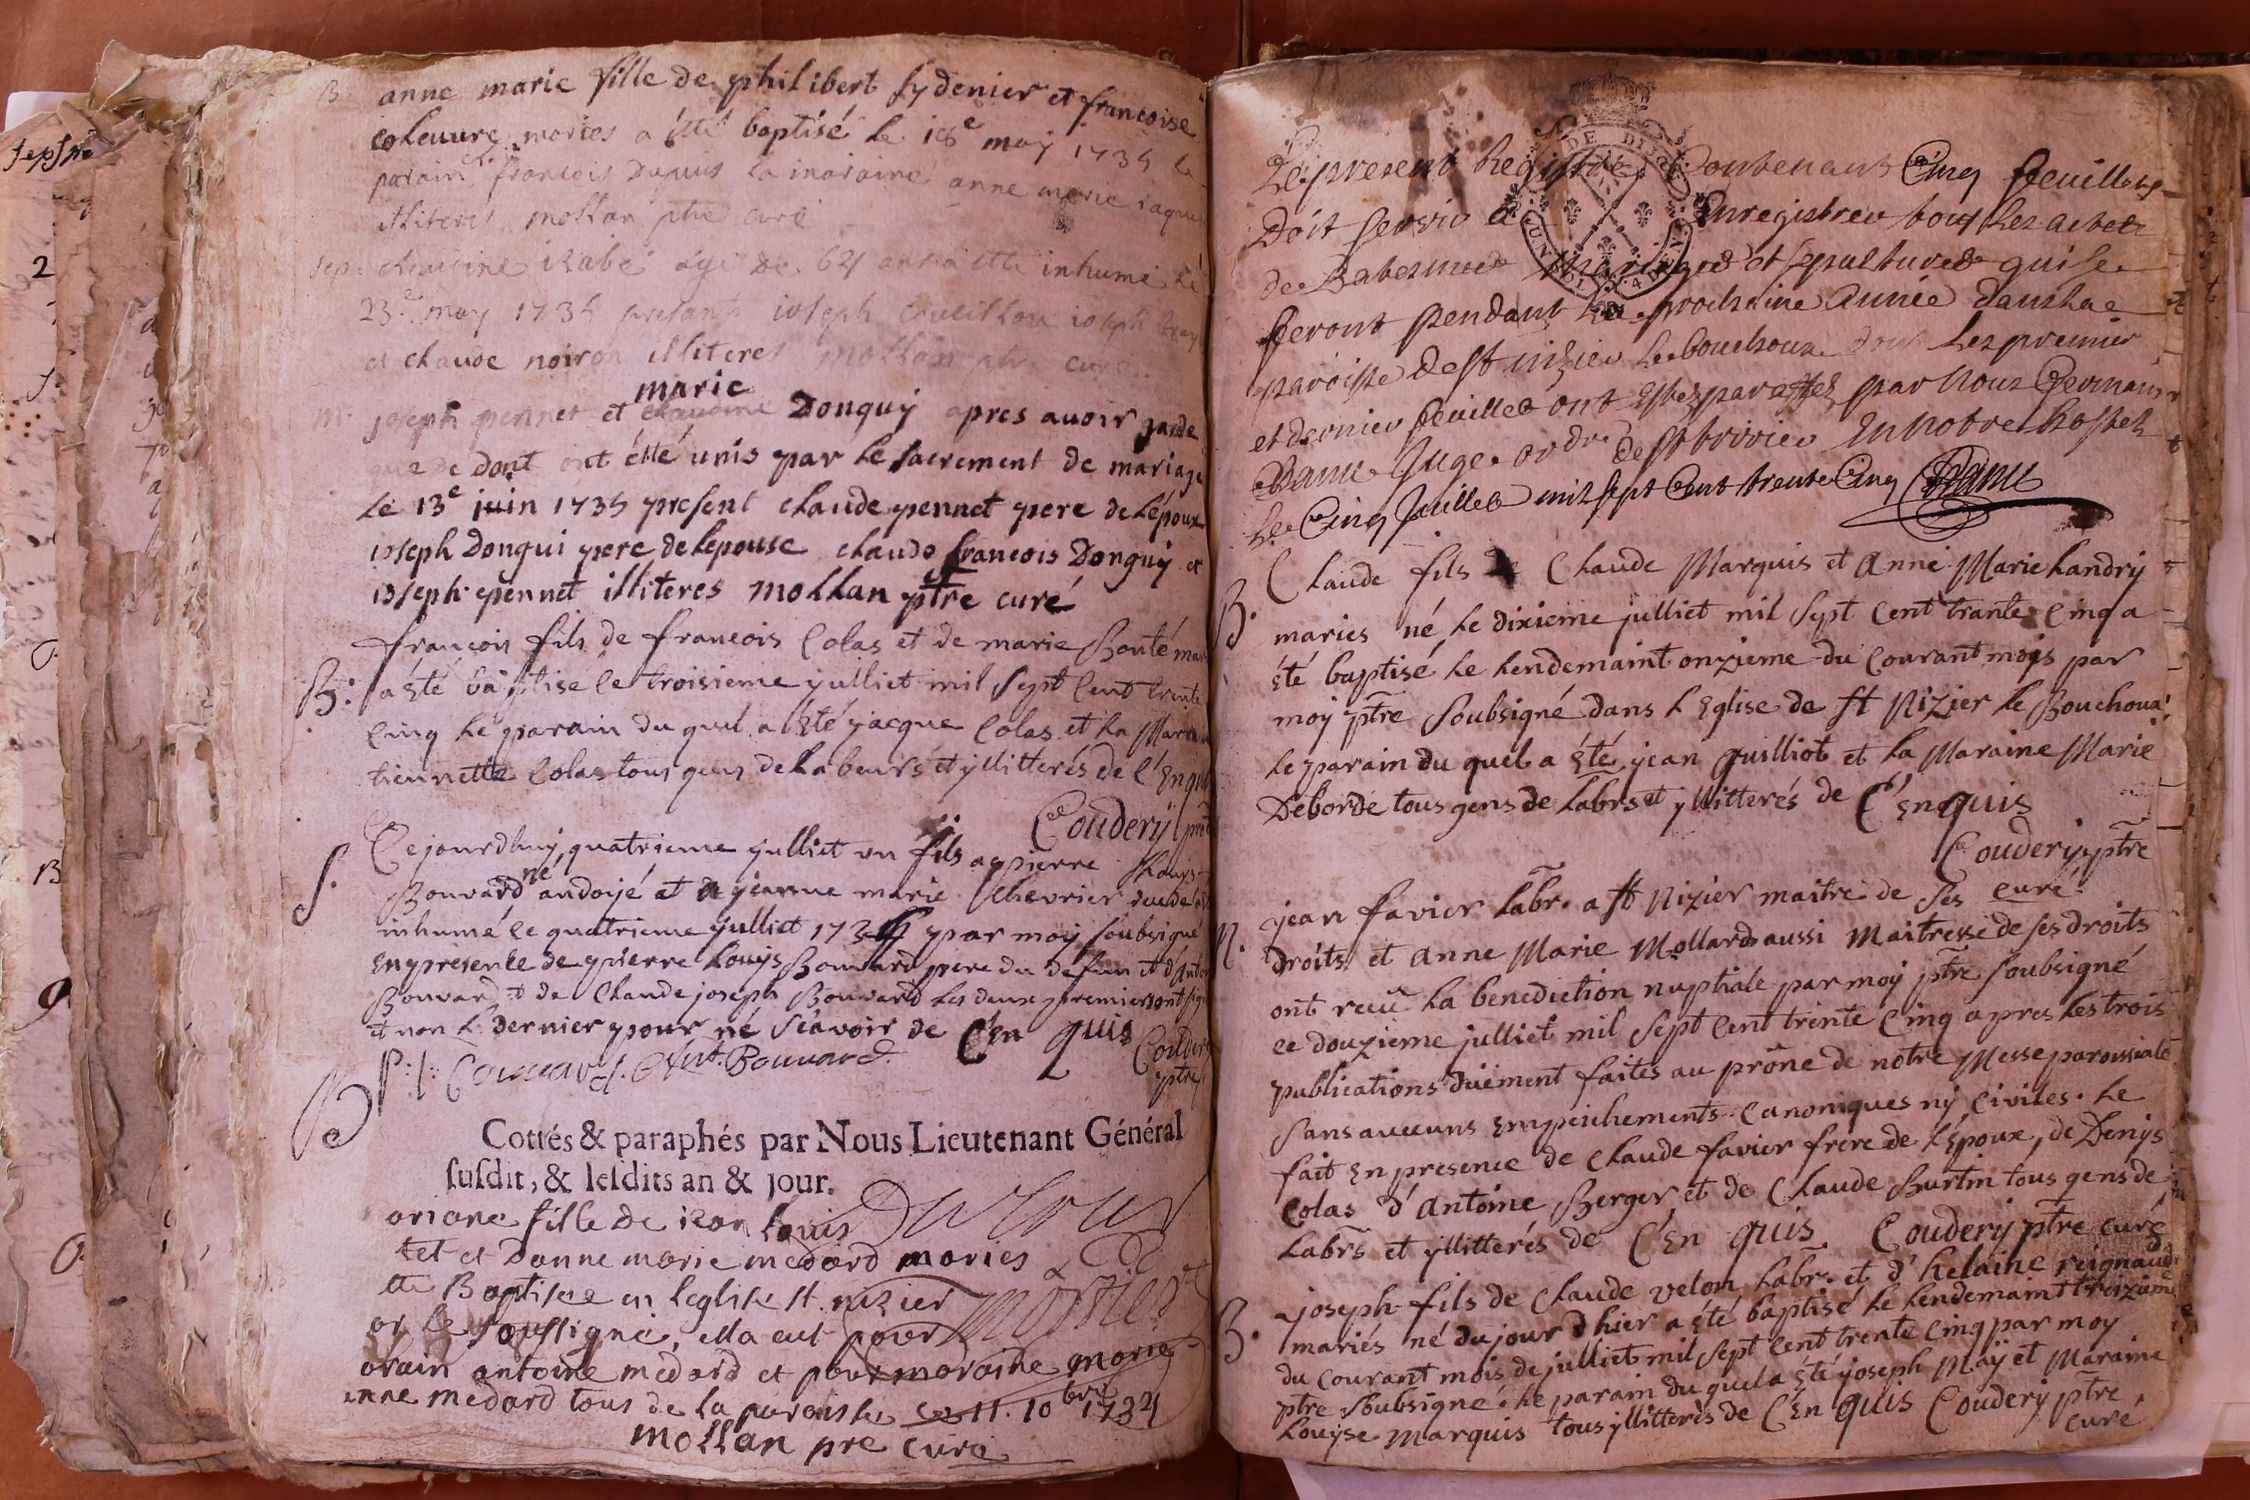 B anne marie fille de philibert sydenier et francoise
coleuure maries a étté baptisé le 18e may 1735 le
parain francois Dupuis la maraine anne marie
illiteres mollan ptre curé
sep. claudine izabé agé de 64 ans a etté inhumé le
23e may 1735 presents joseph joseph
et claude noiron illiteres mollan ptre curé
marie
M. joseph pennet et claudine Donguy apres avoir
ont étté unis par le sacrement de mariage
le 13e juin 1735 present claude pennet pere de lépoux
joseph Dongui pere de lepouse claude francois Donguy et
joseph pennet illiteres mollan ptre curé
françois fils de francois Colas et de marie Bonté
B. a Eté baptisé le troisieme julliet mil sept Cent trente
Cinq le parain du quel a Eté jacque Colas et la
tiennette Colas tous gens de labeurs et yllitterés de C'Enquis
Coudery
S. Ce jourdhuy quatrieme julliet un fils a pierre Louys
né
Bouvard andoyé et a jeanne marie Chevrier
inhumé le quatrieme julliet 1735 par moy soubsigné
En presence de pierre Louys Bouvard pere du defunt
Bouvard et de Claude joseph Bouvard les deux premiers ont
et non le dernier pour né scavoir de C'En quis Coudery
P: l: Bouvard. Ant. Bouvard. ptre
Cottés & paraphés par Nous Lieutenant Général
susdit, & lesdits an & jour.
oriane fille de jean louis
tet et Danne marie medard maries
ette Baptisee en leglise st. nizier
or le soussigné, ella eut pour
arain antoine medard et pour maraine marie
anne medard tous de la paroisse ce 11. 10bre 1734
mollan pre curé
DE DIJON
Le present Registre Contenant Cinq feuillets
Doit servir a Enregistrer tous les actes
de Batesmes Mariages et sepultures qui se
feront pendant la prochaine année dans la
paroisse de st nizier le bouchoux dont les premier
et dernier feuillet ont Estez paraffez par Nous Germain
Danne Juge ordre de st trivier En notre hostel
le Cinq Juillet mil sept Cent trente Cinq
B. Claude fils de Claude Marquis et Anne Marie Landry
maries né le dixieme julliet mil sept Cent trante Cinq a
été baptisé le lendemaint onzieme du Courant mois par
moy ptre soubsigné dans l'Eglise de st Nizier le Bouchoux
le parain du quel a Eté jean Guilliot et la Maraine Marie
Deborde tous gens de labrs et yllitterés de C'Enquis
Coudery ptre
curé.
M. jean favier labr. a st Nizier maitre de ses
droits et Anne Marie Mollard aussi Maitresse de ses droits
ont recû la benediction nuptiale par moy ptre soubsigné
ce douzieme julliet mil sept Cent trente Cinq apres les trois
publications duëment faites au prône de notre Messe paroissiale
sans auccuns empeichements Canoniques ny Civiles. le
fait en presence de Claude favier frere de l'Epoux, de Denys
Colas d'Antoine Berger et de Claude Burtin tous gens de
labrs et yllitterés de C'En quis. Coudery ptre curé
B. joseph fils de Claude velon labr. et d'helaine reignaud
mariés né du jour d'hier a été baptisé le lendemaint treizieme
du courant mois de julliet mil sept Cent trente Cinq par moy
ptre soubsigné. le parain du quel a été joseph May et Maraine
Louyse Marquis tous yllitterés de C'En quis Coudery ptre
curé